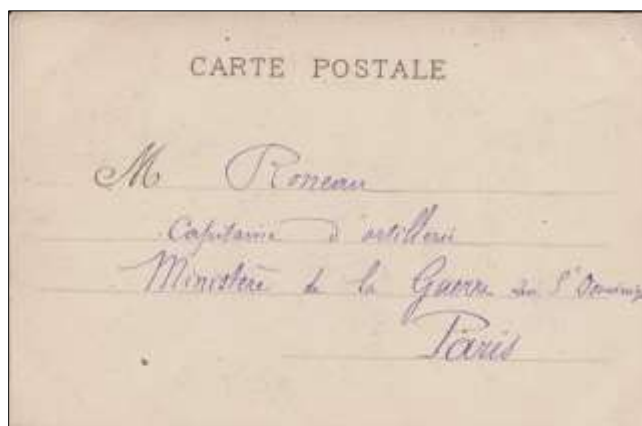 CARTE POSTALE
M Roneau
Capitaine d'artillerie
Ministère de la Guerre St Dominiq
Paris